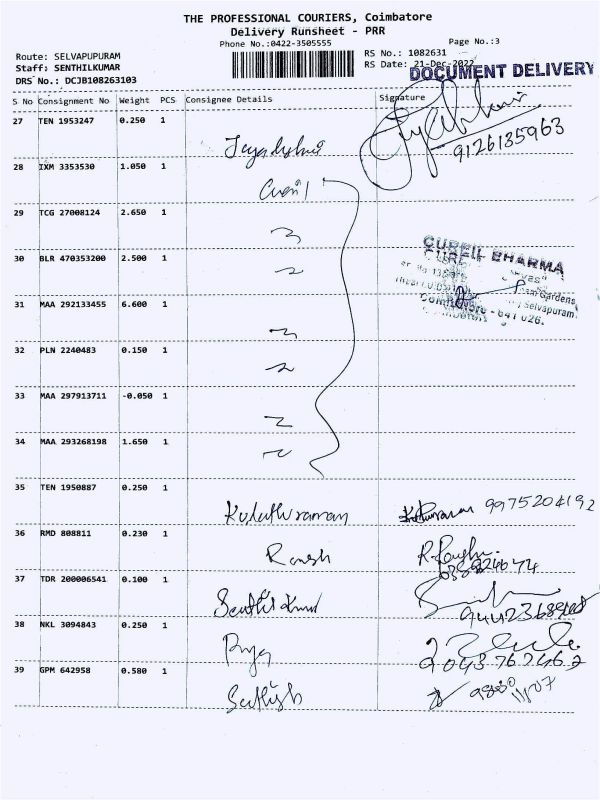 THE PROFESSIONAL COURIERS, Coimbatore
Delivery Runsheet - PRR
Phone No.:0422-3505555
Page No.:3
Route: SELVAPUPURAM
RS No.: 1082631
Staff: SENTHILKUMAR
RS Date: 21-Dec-2022
DRS No.: DCJB108263103
DOCUMENT DELIVERY
S No Consignment No Weight PCS Consignee Details Signature
27 TEN 1953247 0.250 1
9126135963
28 IXM 3353530 1.050 1
29 TCG 27008124 2.650 1
30 BLR 470353200 2.500 1
CUREIL BHARMA
Gardens
Selvapuram
Coimbatore - 641 026.
31 MAA 292133455 6.600 1
32 PLN 2240483 0.150 1
33 MAA 297913711 -0.050 1
34 MAA 293268198 1.650 1
35 TEN 1950887 0.250 1
9975204192
36 RMD 808811 0.230 1
Ramesh
37 TDR 200006541 0.100 1
Senthil Kumar
38 NKL 3094843 0.250 1
Priya
9043767462
39 GPM 642958 0.580 1
Sathish